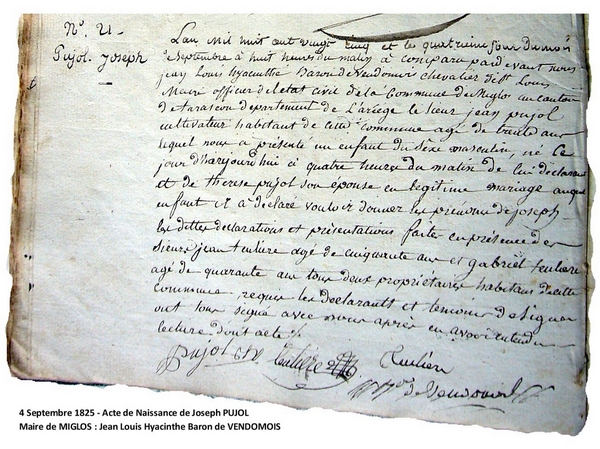 N° 21
Pujol Joseph
L'an mil huit cent vingt cinq et le quatrieme jour du mois
de Septembre à huit heures du matin a comparu pardevant nous
jean Louis hyacinthe Baron de Vendomois chevalier de St Louis
Maire officier de l'état civil de la Commune de Miglos au canton
de Tarascon departement de L'ariège le sieur jean pujol
cultivateur habitant de cette commune agé de trente ans
lequel nous a présenté un enfant du Sexe masculin, né ce
jour d'haujourd'hui à quatre heures du matin de lui declarant
et de therese pujol son épouse en legitime mariage auquel
enfant il a déclaré vouloir donner les prénoms de joseph
les dittes declarations et présentations faites en présence des
Sieurs jean teulière agé de cinquante ans et gabriel teulière
agé de quarante ans tous deux propriétaires habitant de cette
commune, requis les declarants et temoins de Signer
ont tous signé avec nous après en avoir entendu
lecture dont acte
pujol
teulière
Teulière
B.on de Vendomois
4 Septembre 1825 - Acte de Naissance de Joseph PUJOL
Maire de MIGLOS : Jean Louis Hyacinthe Baron de VENDOMOIS